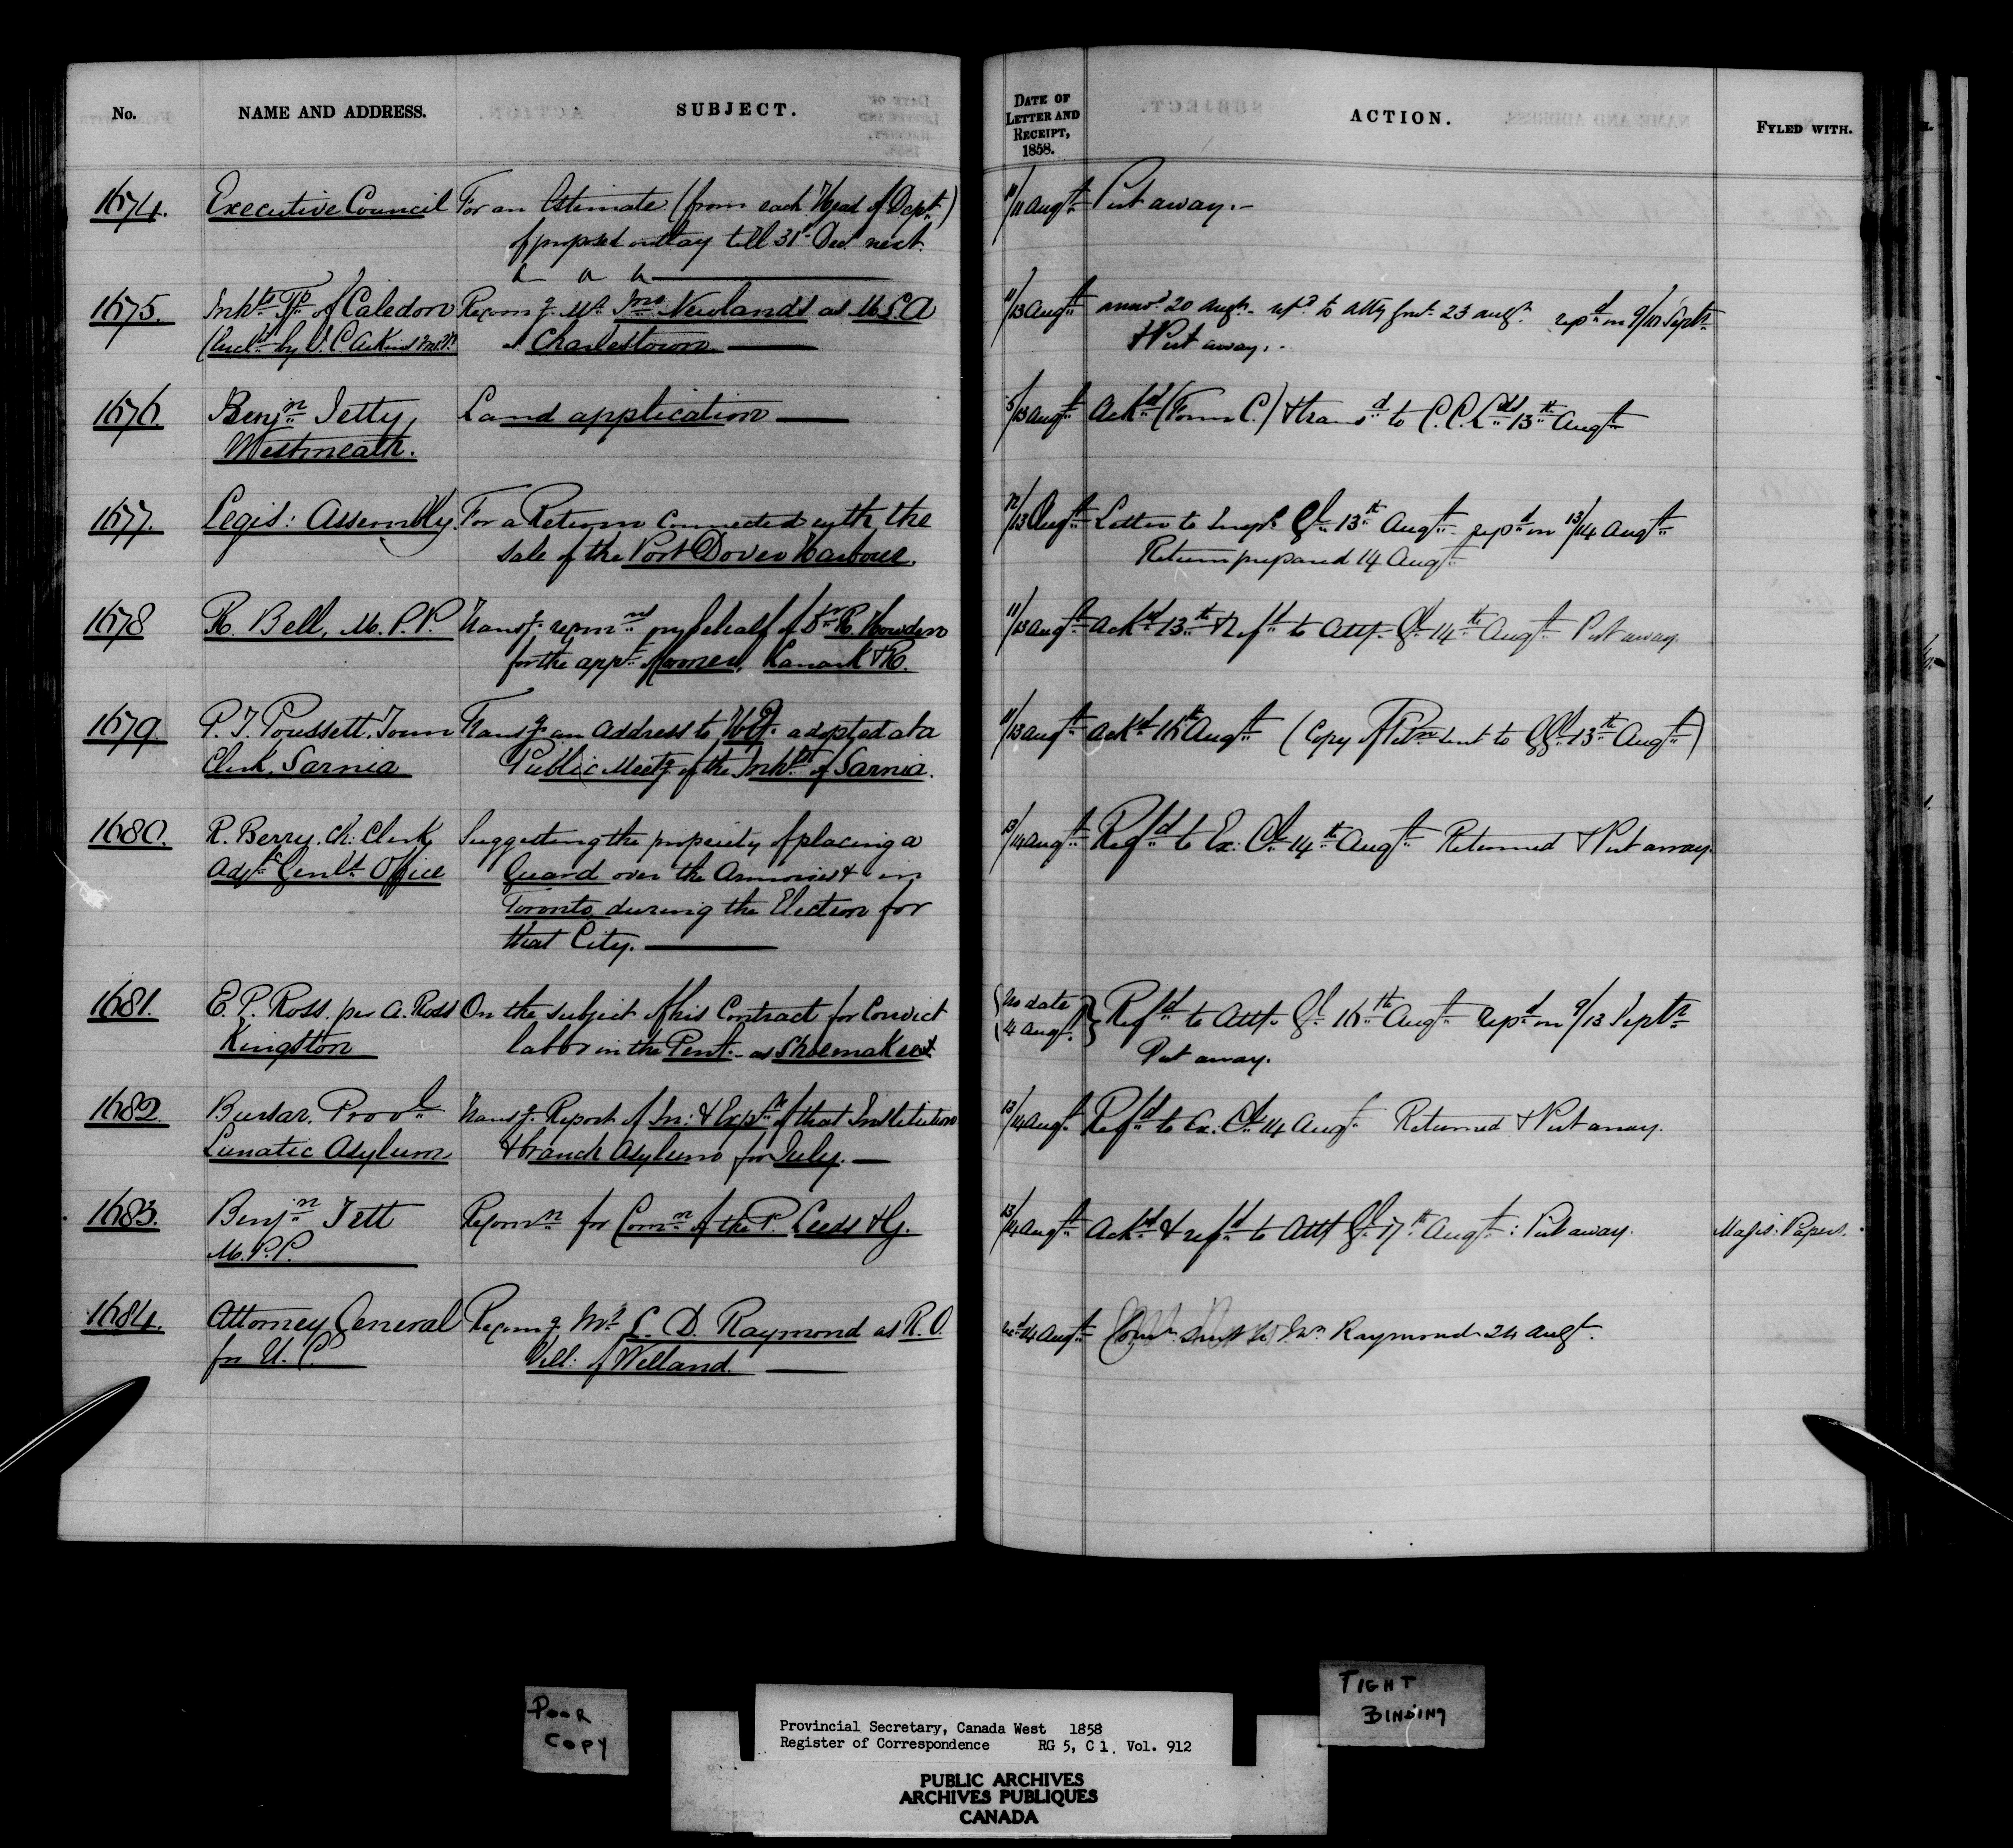 No. NAME AND ADDRESS. SUBJECT. DATE OF LETTER AND RECEIPT, 1858. ACTION. FYLED WITH.
1674. Executive Council For an Estimate (from each Head of Dept.) 11/11 Augt Put away.-
of proposed outlay till 31st Dec. next.
1675. Inhts Tp of Caledon Recomg Mr Jno Newlands as M L A 11/13 Augt answd 20 Augt - refd to Atty Genl 23 Augt repd on 9/10 Septr
(Encld by J. C. Aikins M.P.P. at Charlestown & Put away.
1676. Benjn Jetty, Land application 5/13 Augt Ackd (Form C.) & transd to C. C. Lds 13th Augt
Westmeath.
1677. Legis: Assembly. For a Return connected with the 12/13 Augt Letter to Inspr Gl 13th Augt repd on 13/14 Augt
sale of the Port Dover Harbour. Return prepared 14 Augt
1678 R. Bell, M.P.P. Transg recomns on behalf of Dr R. Howden 11/13 Augt Ackd 13th & refd to Atty Gl 14th Augt Put away.
for the appt of Coroner, Lanark & R.
1679. P. T. Poussett, Town Transg an Address to H. E. adopted at a 11/13 Augt Ackd 16th Augt (Copy of Petn sent to GGl 13th Augt)
Clerk, Sarnia Public Meetg of the Inhts of Sarnia.
1680. R. Berry, Ch: Clerk, Suggesting the propriety of placing a 13/14 Augt Refd to Ex: Cl 14th Augt Returned & Put away.
Adjt Genls Office Guard over the Armories & in
Toronto during the Election for
that City.
1681. E. P. Ross. per A. Ross On the subject of his Contract for Convict (No date 14 Augt.) Refd to Atty Gl 16th Augt Repd on 9/13 Septr
Kingston labor in the Pent. as Shoemakers. Put away.
1682. Bursar, Provl Transg Report of In: & Expre of that Institution 13/14 Augt Refd to Ex. Cl 14 Augt Returned & Put away.
Lunatic Asylum & branch Asylum for July.
1683. Benjn Tett Recomn for Comn of the P. Leeds & G. 13/14 Augt Ackd & refd to Atty Gl 17th Augt: Put away. Magis: Papers.
M.P.P.
1684. Attorney General Recomg Mr L. D. Raymond as R. O. recd 14 Augt Comn sent to Mr Raymond 24 Augt.
for U. C. Vill: of Welland.
POOR COPY
TIGHT BINDING
Provincial Secretary, Canada West 1858
Register of Correspondence RG 5, C 1, Vol. 912
PUBLIC ARCHIVES
ARCHIVES PUBLIQUES
CANADA